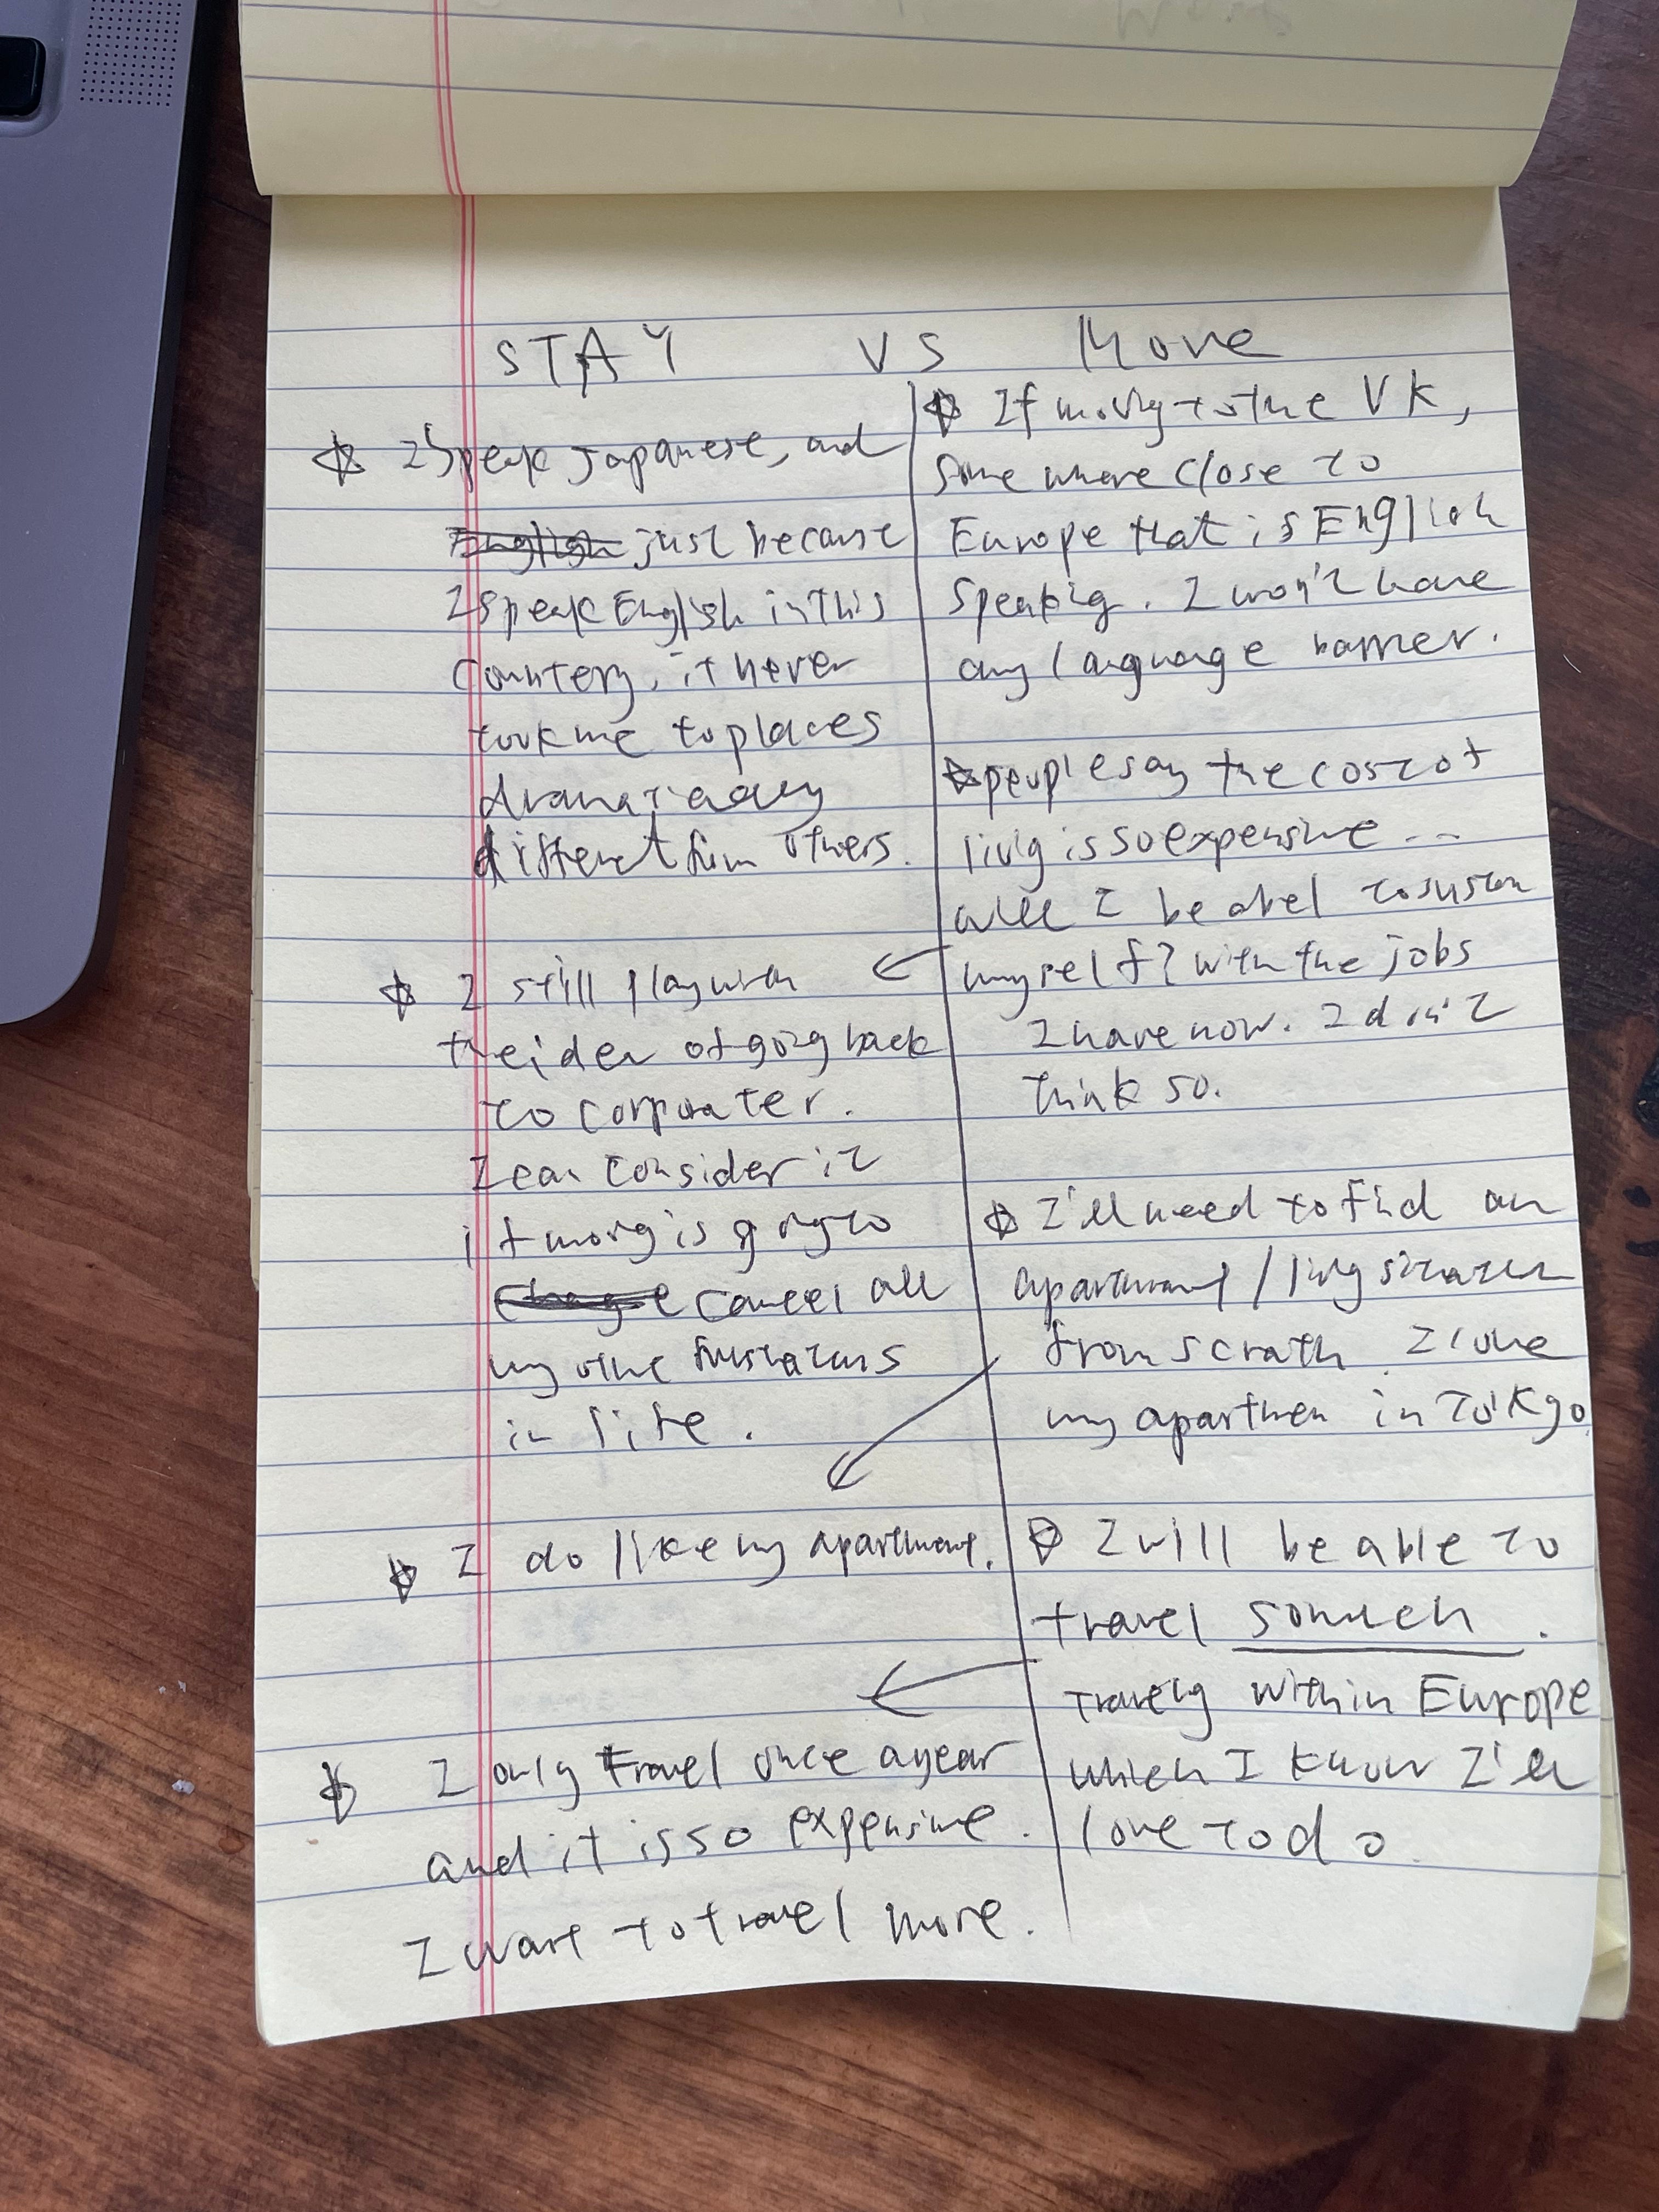 STAY VS Move
I speak Japanese, and
English just because
I speak English in this
country, it never
took me to places
dramatically
different from others.
I still play with
the idea of going back
to corporater.
I can consider it
if moving is going to
change cancel all
my other frustrations
in life.
I do like my apartment.
I only travel once a year
and it is so expensive.
I want to travel more.
If moving to the UK,
some where close to
Europe that is English
speaking. I won't have
any language barrier.
people say the cost of
living is so expensive ...
will I be abel to sustain
myself? with the jobs
I have now. I don't
think so.
I'll need to find an
apartment / living situation
from scrath. I love
my apartmen in Tokyo.
I will be able to
travel so much.
Traveling within Europe
which I know I'll
love to do.